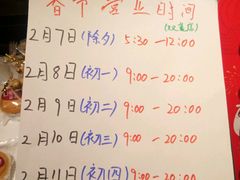 春节营业时间
2月7日(除夕) 5:30 – 12:00
2月8日(初一) 9:00 – 20:00
2月9日(初二) 9:00 – 20:00
2月10日(初三) 9:00 – 20:00
2月11日(初四) 9:00 – 20:00